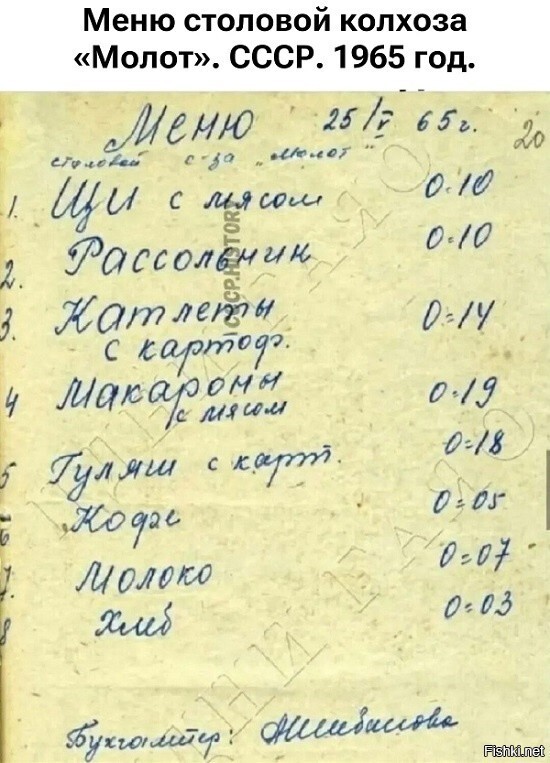 Меню столовой колхоза
«Молот». СССР. 1965 год.
Меню 25/V 65 г. 20
столовой с-за „Молот"
1. Щи с мясом 0=10
2. Рассольник 0=10
3. Катлеты 0=14
с картоф.
4 Макароны 0=19
с мясом
5 Гуляш с карт. 0=18
6 Кофе 0=05
7. Молоко 0=07
8 Хлеб 0=03
Бухгалтер:
СССР.HISTORY
Fishki.net